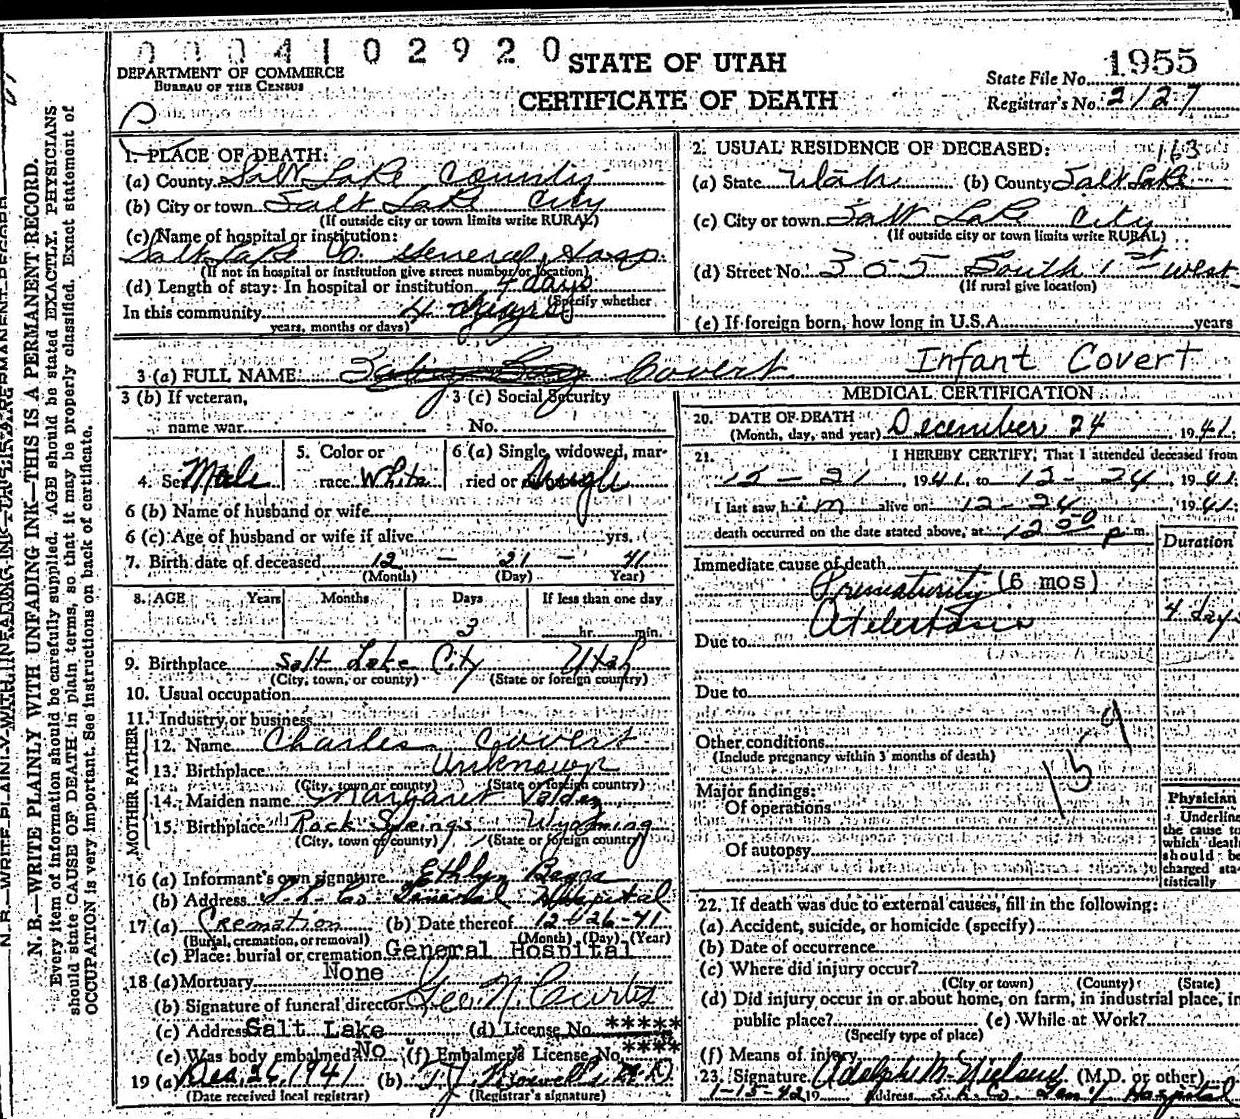 0004102920
STATE OF UTAH
CERTIFICATE OF DEATH
DEPARTMENT OF COMMERCE
BUREAU OF THE CENSUS
State File No. 1955
Registrar's No. 2127
N. B.—WRITE PLAINLY WITH UNFADING INK—THIS IS A PERMANENT RECORD.
Every item of information should be carefully supplied. AGE should be stated EXACTLY. PHYSICIANS
should state CAUSE OF DEATH in plain terms, so that it may be properly classified. Exact statement of
OCCUPATION is very important. See instructions on back of certificate.
1. PLACE OF DEATH:
(a) County Salt Lake County
(b) City or town Salt Lake City
(If outside city or town limits write RURAL)
(c) Name of hospital or institution:
Salt Lake Co. General Hosp.
(If not in hospital or institution give street number or location)
(d) Length of stay: In hospital or institution 4 days
(Specify whether
In this community 4 days
years, months or days)
2. USUAL RESIDENCE OF DECEASED: 163
(a) State Utah (b) County Salt Lake
(c) City or town Salt Lake City
(If outside city or town limits write RURAL)
(d) Street No. 305 South 1st West
(If rural give location)
(e) If foreign born, how long in U.S.A. years
3 (a) FULL NAME Baby Boy Covert Infant Covert
3 (b) If veteran,
name war
3 (c) Social Security
No.
4. Sex Male
5. Color or
race White
6 (a) Single, widowed, mar-
ried or Single
6 (b) Name of husband or wife
6 (c) Age of husband or wife if alive yrs.
7. Birth date of deceased 12 - 21 - 41
(Month) (Day) Year)
8. AGE Years Months Days If less than one day
3 hr. min.
9. Birthplace Salt Lake City Utah
(City, town, or county) (State or foreign country)
10. Usual occupation
11. Industry or business
FATHER
12. Name Charles Covert
13. Birthplace Unknown
(City, town or county) (State or foreign country)
MOTHER
14. Maiden name Margaret Valdez
15. Birthplace Rock Springs Wyoming
(City, town or county) (State or foreign country)
16 (a) Informant's own signature Ethlyn
(b) Address S. L. Co. General Hospital
17 (a) Cremation (b) Date thereof 12-26-41
(Burial, cremation, or removal) (Month) (Day) (Year)
(c) Place: burial or cremation General Hospital
18 (a) Mortuary None
(b) Signature of funeral director Geo. N Curtis
(c) Address Salt Lake (d) License No. *****
(e) Was body embalmed? No (f) Embalmer's License No. ****
19 (a) Dec. 26, 1941 (b) T. J. Howells M.D.
(Date received local registrar) (Registrar's signature)
MEDICAL CERTIFICATION
20. DATE OF DEATH
(Month, day, and year) December 24, 1941
21. I HEREBY CERTIFY, That I attended deceased from
12 - 21, 1941 to 12 - 24, 1941
I last saw him alive on 12 - 24, 1941
death occurred on the date stated above, at 12:00 p m.
Duration
Immediate cause of death
Prematurity (6 mos)
Atelectasis 4 days
Due to
Due to
159
Other conditions
(Include pregnancy within 3 months of death)
Major findings:
Of operations
Of autopsy
Physician
Underline
the cause to
which death
should be
charged sta-
tistically
22. If death was due to external causes, fill in the following:
(a) Accident, suicide, or homicide (specify)
(b) Date of occurrence
(c) Where did injury occur?
(City or town) (County) (State)
(d) Did injury occur in or about home, on farm, in industrial place, in
public place? (e) While at Work?
(Specify type of place)
(f) Means of injury
23. Signature Adolph M. Nielsen (M.D. or other)
1-15-42 19 Address S. L. Co. Gen'l Hospital